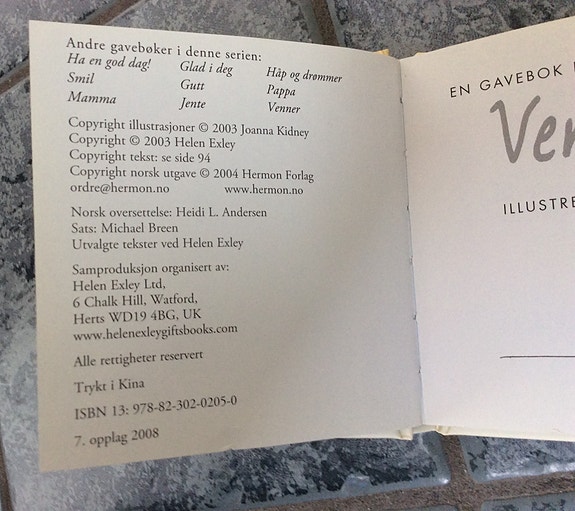 Andre gavebøker i denne serien:
Ha en god dag! Glad i deg Håp og drømmer
Smil Gutt Pappa
Mamma Jente Venner
Copyright illustrasjoner © 2003 Joanna Kidney
Copyright © 2003 Helen Exley
Copyright tekst: se side 94
Copyright norsk utgave © 2004 Hermon Forlag
ordre@hermon.no www.hermon.no
Norsk oversettelse: Heidi L. Andersen
Sats: Michael Breen
Utvalgte tekster ved Helen Exley
Samproduksjon organisert av:
Helen Exley Ltd,
6 Chalk Hill, Watford,
Herts WD19 4BG, UK
www.helenexleygiftsbooks.com
Alle rettigheter reservert
Trykt i Kina
ISBN 13: 978-82-302-0205-0
7. opplag 2008
EN GAVEBOK
Ven
ILLUSTRE